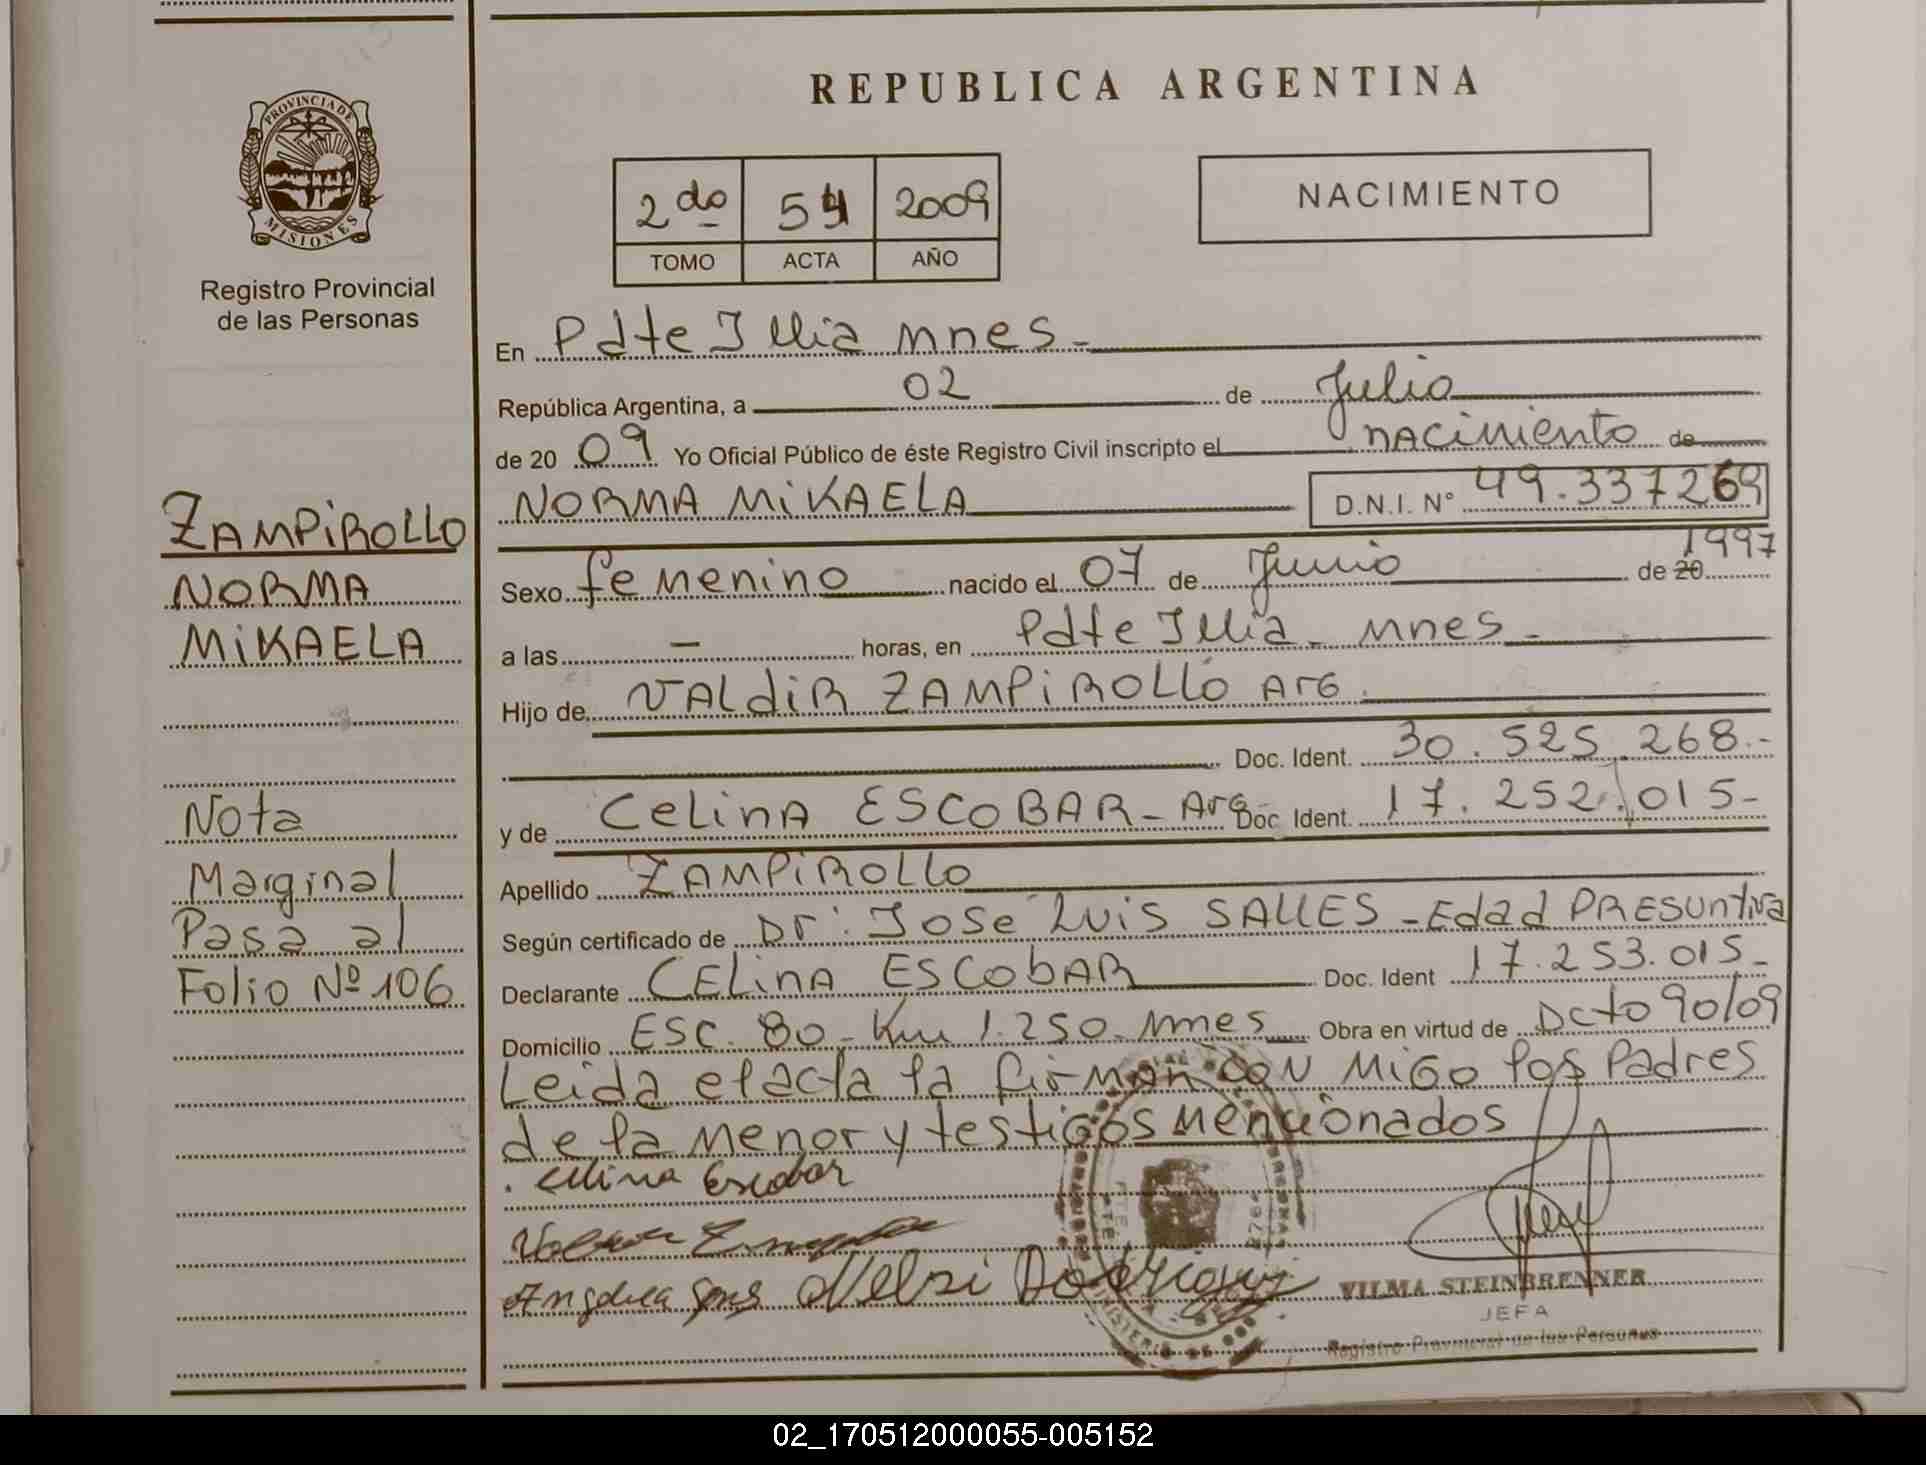 REPUBLICA ARGENTINA
PROVINCIA DE MISIONES
Registro Provincial
de las Personas
2do 54 2009
TOMO ACTA AÑO
NACIMIENTO
En Pdte Illia mnes-
República Argentina, a 02 de Julio
de 2009 Yo Oficial Público de éste Registro Civil inscripto el nacimiento de
NORMA MIKAELA D.N.I. N° 49.337269
Sexo femenino nacido el 07 de Junio de 20 1997
a las - horas, en Pdte Illia - mnes -
Hijo de VALdiR ZAMPiROLLO Arg.
Doc. Ident. 30.525.268.-
y de CelinA ESCOBAR - Arg- Doc. Ident. 17.252.015-
Apellido ZAMPiROLLO
Según certificado de Dr. José Luis SALLES - Edad PRESuntiva
Declarante CELinA ESCobAR Doc. Ident 17.253.015-
Domicilio ESC. 80 - Km 1.250 - mnes Obra en virtud de Dcto 90/09
Leida el acta la firman con migo los Padres
de la menor y testigos mencionados
ZAMPiROLLO
NORMA
MiKAELA
Nota
Marginal
Pasa al
Folio Nº 106
Celina Escobar
Nelsi Rodriguez
VILMA STEINBRENNER
JEFA
Registro Provincial de las Personas
02_170512000055-005152